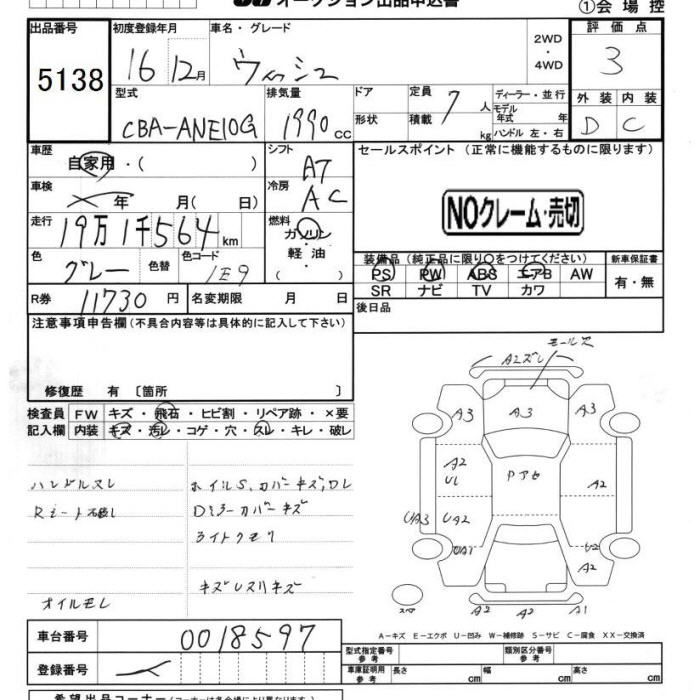 オークション出品申込書
①会場控
出品番号
5138
初度登録年月
16 12月
車名・グレード
ウィッシュ
2WD
・
4WD
評価点
3
型式
CBA-ANE10G
排気量
1990cc
ドア
形状
定員 7 人
積載 kg
ディーラー・並行
モデル
年式 年
ハンドル 左・右
外装 内装
D C
車歴
自家用・( )
シフト
A7
セールスポイント (正常に機能するものに限ります)
車検
年 月( 日)
冷房
AC
NOクレーム・売切
走行
19万1千564km
燃料
ガソリン
軽油
( )
色
グレー
色替
色コード
1E9
装備品(純正品に限り○をつけてください)
PS PW ABS エアB AW
SR ナビ TV カワ
新車保証書
有・無
R券 11730円
名変期限 月 日
後日品
注意事項申告欄(不具合内容等は具体的に記入して下さい)
修復歴 有〔箇所 〕
検査員 FW キズ・飛石・ヒビ割・リペア跡・×要
記入欄 内装 キズ・汚レ・コゲ・穴・スレ・キレ・破レ
ハンドルスレ
ホイルS,カバーキズ,ワレ
Dミラーカバーキズ
ライトクモリ
キズレスリキズ
オイルモレ
モール欠
A2ズレ
A3 A3 A3
A2
U1
Pアセ
A2
UA3 UA2
UA1 U2
A2
スペア
A2 A2 A1
A-キズ E-エクボ U-凹み W-補修跡 S-サビ C-腐食 XX-交換済
車台番号 0018597
登録番号
型式指定番号
参考
類別区分番号
参考
車庫証明用
参考
長さ cm 幅 cm 高さ cm
希望出品コーナー